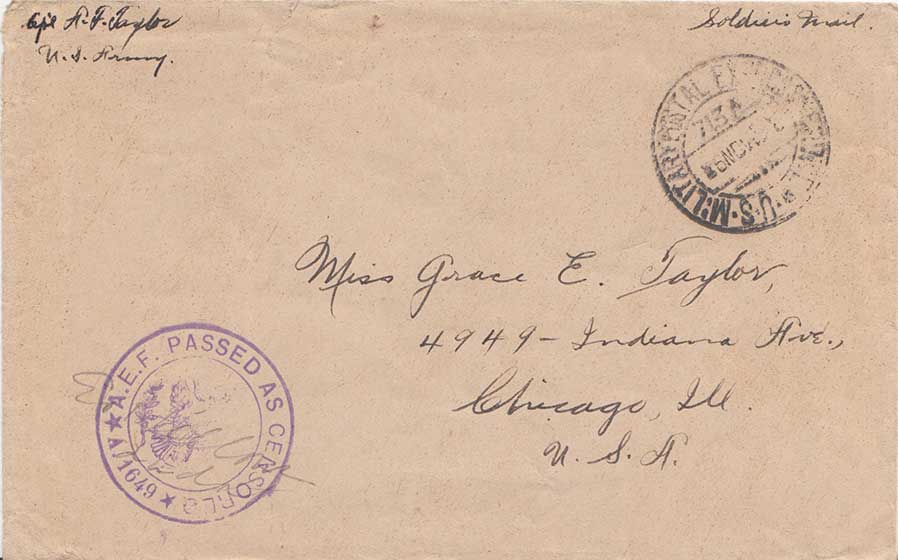 Cpl A. F. Taylor
U. S. Army.
Soldier's Mail.
U.S. MILITARY POSTAL EXPRESS
713A
26 NOV
Miss Grace E. Taylor,
4949 - Indiana Ave.,
Chicago, Ill.
U. S. A.
A.E.F. PASSED AS CENSORED
A/1649